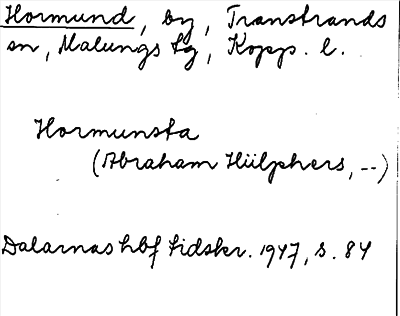 Hormund, by, Transtrands
sn, Malungs tg, Kopp. l.
Hormunsta
(Abraham Hülphers, --)
Dalarnas hbf tidskr. 1947, s. 84